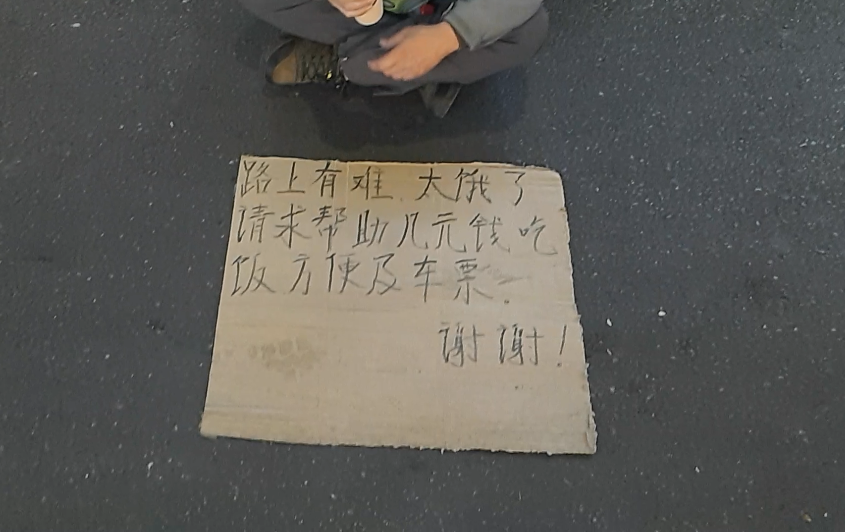 路上有难 太饿了
请求帮助几元钱吃
饭方便及车票。
谢谢!